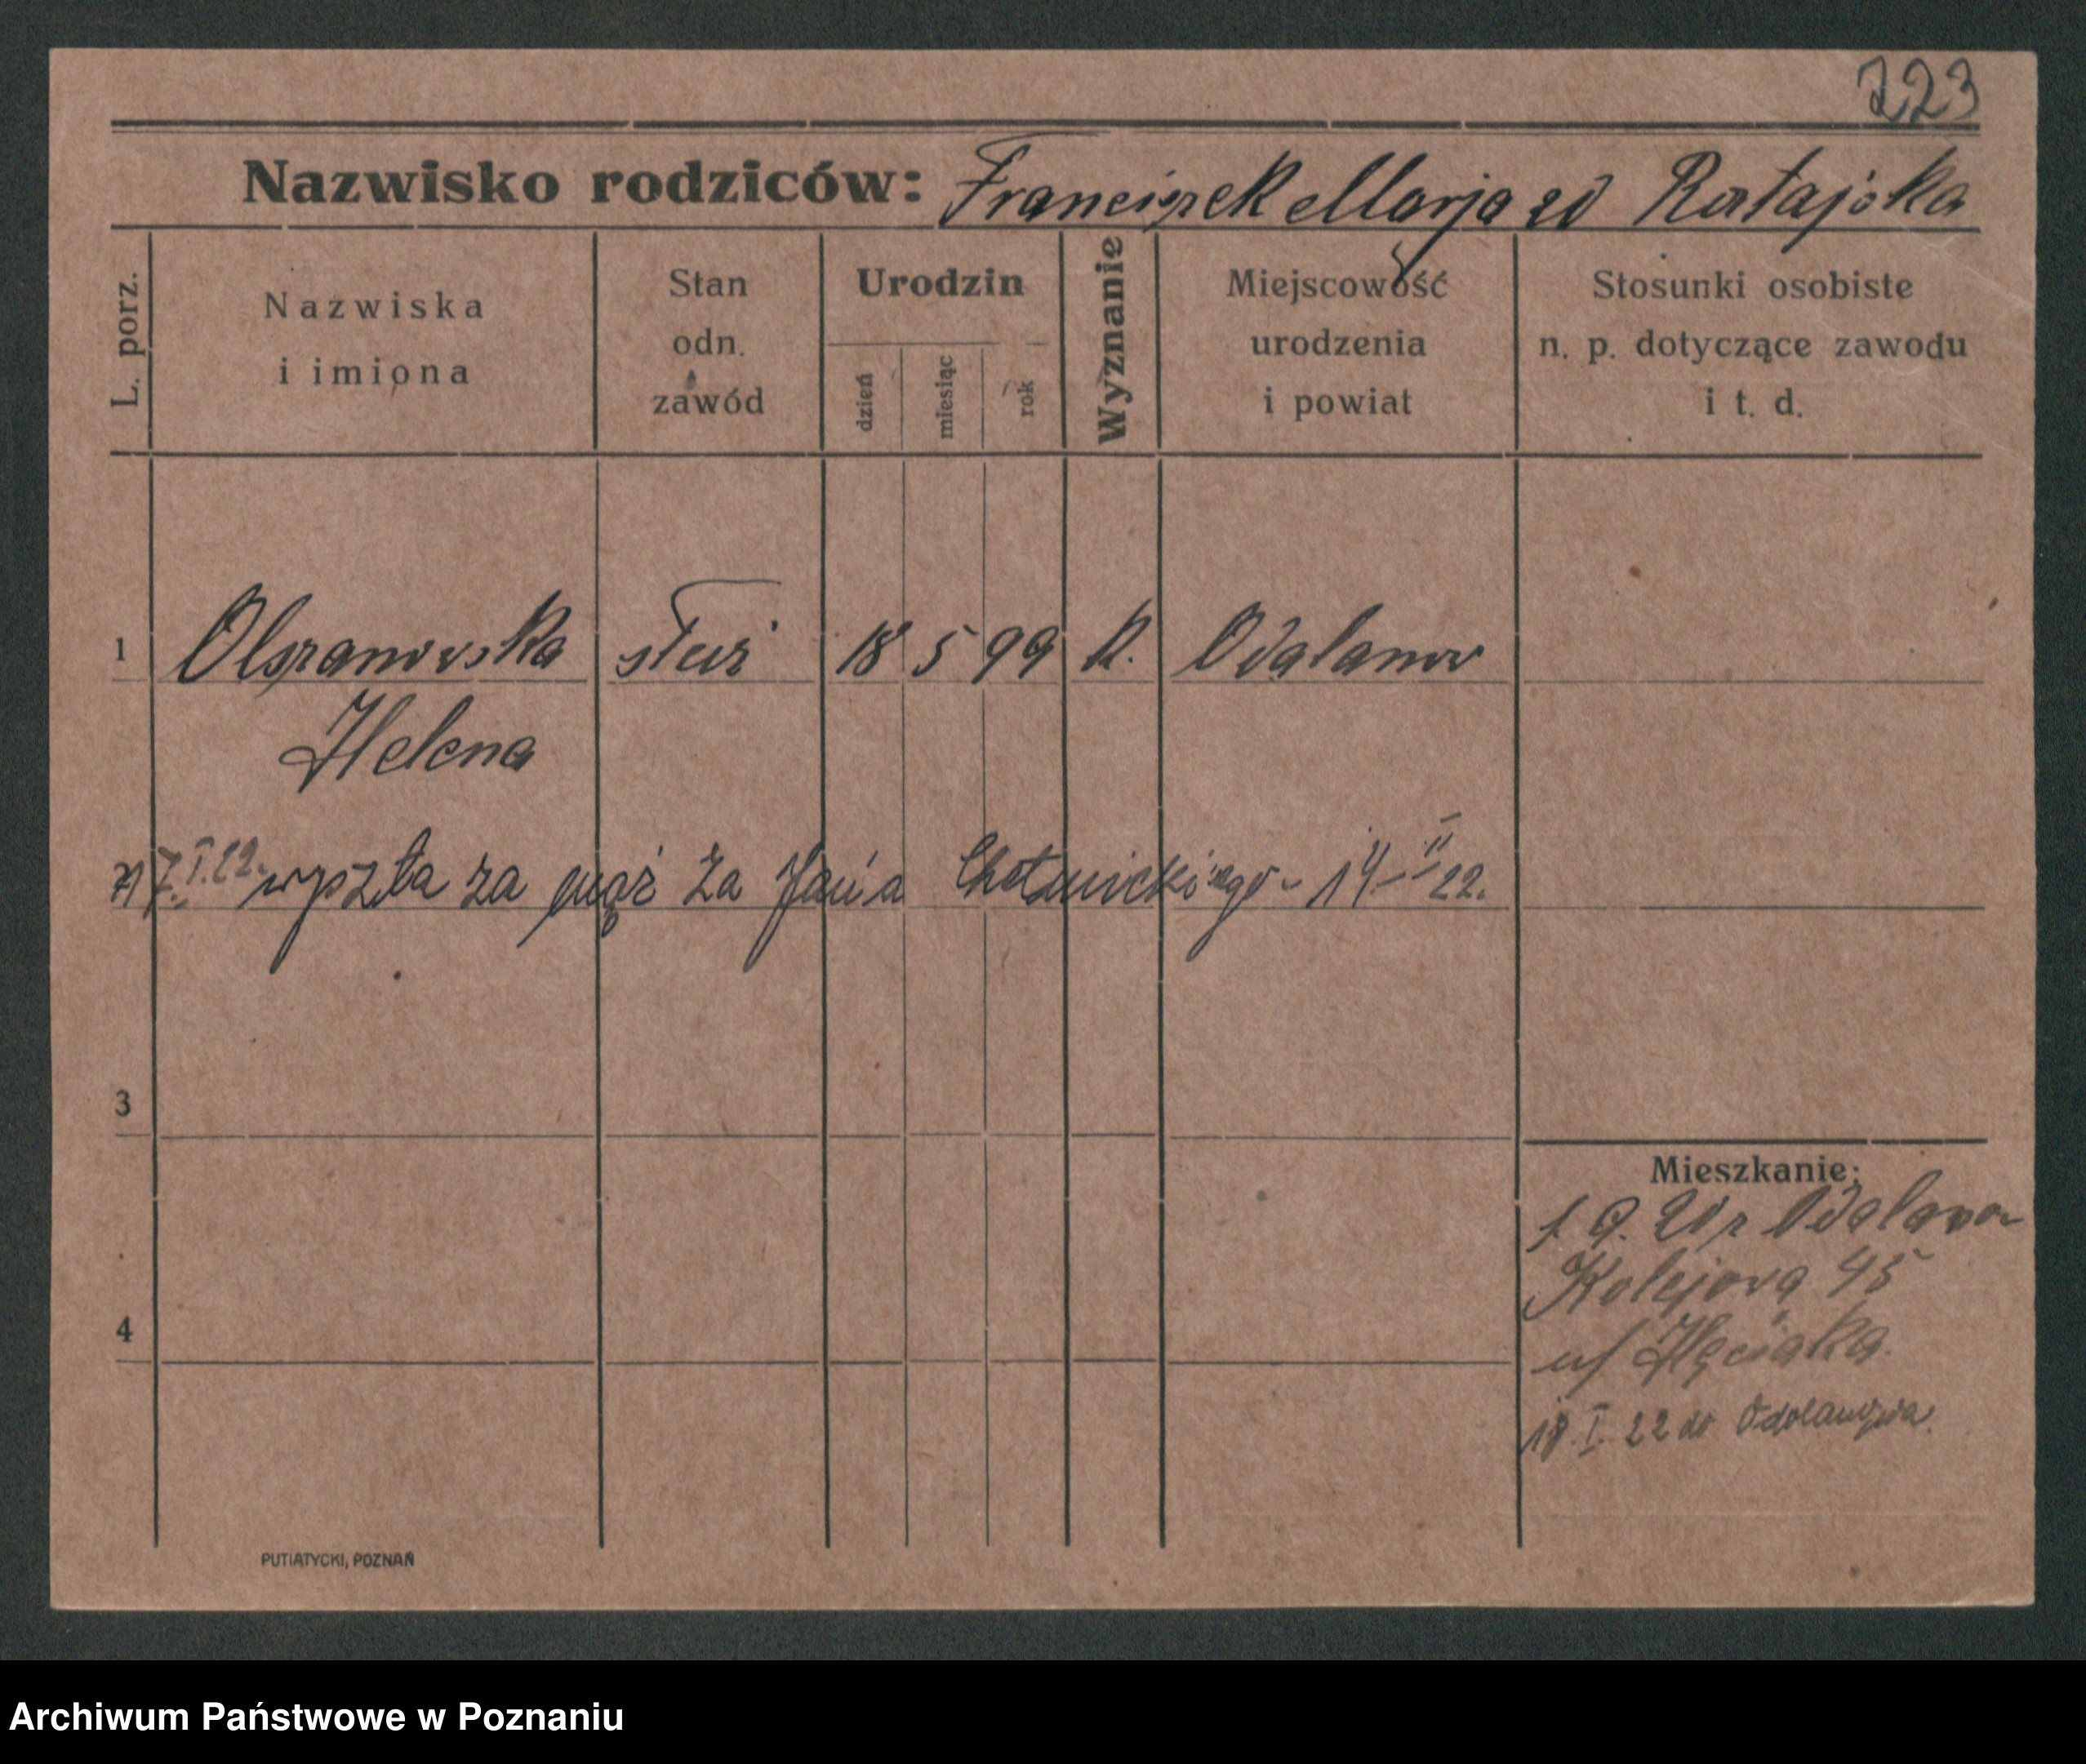 223
Nazwisko rodziców: Franciszek Marja
L. porz.
Nazwiska
i imiona
Stan
odn.
zawód
Urodzin
dzień
miesiąc
rok
Wyznanie
Miejscowość
urodzenia
i powiat
Stosunki osobiste
n. p. dotyczące zawodu
i t. d.
1 Olszanowska służ 18 5 99 k. Odalanow
Helena
17. I. 22. wyszła za mąż za Jana 14 – II 22.
3
Mieszkanie:
Kolejova 45
4
18. I. 22 do Odolanowa
PUTIATYCKI, POZNAŃ
Archiwum Państwowe w Poznaniu